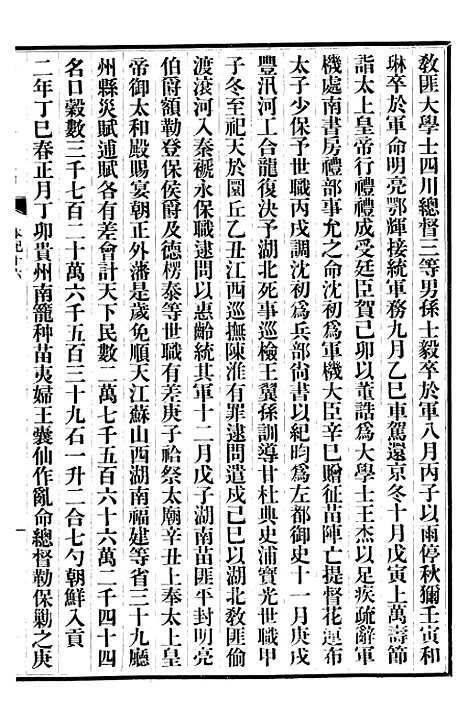 教匪大學士四川總督三等男孫士毅卒於軍八月丙子以雨停秋獮壬寅和
琳卒於軍命明亮鄂輝接統軍務九月乙巳車駕還京冬十月戊寅上萬壽節
詣太上皇帝行禮禮成受廷臣賀己卯以董誥爲大學士王杰以足疾疏辭軍
機處南書房禮部事允之命沈初爲軍機大臣辛巳贈征苗陣亡提督花連布
太子少保予世職丙戌調沈初爲兵部尚書以紀昀爲左都御史十一月庚戌
豐汛河工合龍復決予湖北死事巡檢王翼孫訓導甘杜典史浦寶光世職甲
子冬至祀天於圜丘乙丑江西巡撫陳淮有罪逮問遣戍己巳以湖北教匪偷
渡滾河入秦褫永保職逮問以惠齡統其軍十二月戊子湖南苗匪平封明亮
伯爵額勒登保侯爵及德楞泰等世職有差庚子祫祭太廟辛丑上奉太上皇
帝御太和殿賜宴朝正外藩是歲免順天江蘇山西湖南福建等省三十九廳
州縣災賦逋賦各有差會計天下民數二萬七千五百六十六萬二千四十四
名口穀數三千七百二十萬六千五百三十九石一升二合七勺朝鮮入貢
二年丁巳春正月丁卯貴州南籠种苗夷婦王囊仙作亂命總督勒保勦之庚
本紀十六